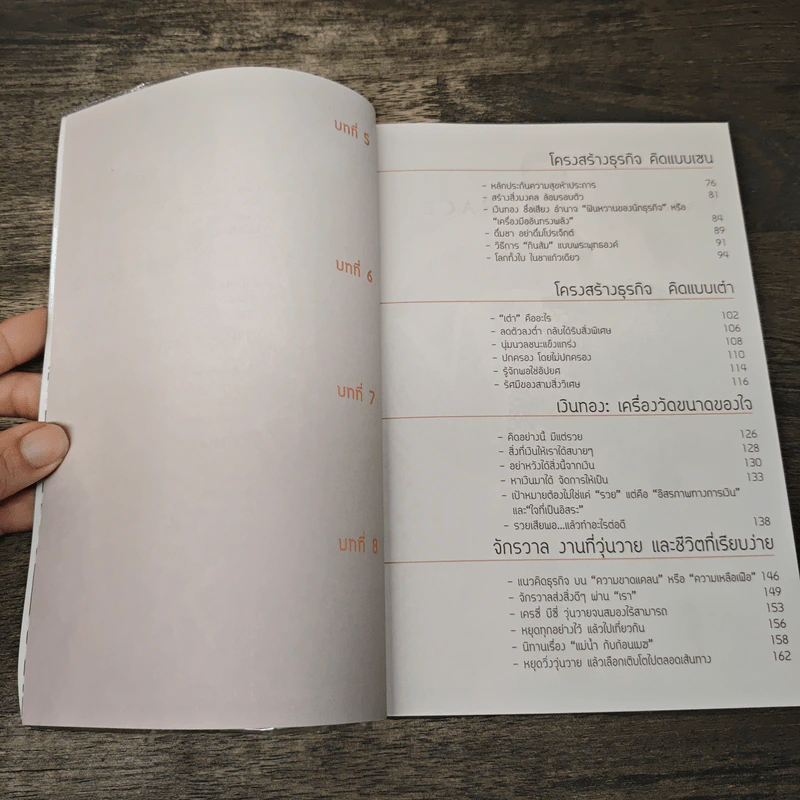 บทที่ 5
โครงสร้างธุรกิจ คิดแบบเซน
- หลักประกันความสุขห้าประการ 76
- สร้างสิ่งมงคล ล้อมรอบตัว 81
- เงินทอง ชื่อเสียง อำนาจ “ฝันหวานของนักธุรกิจ” หรือ
“เครื่องมืออันทรงพลัง” 84
- ดื่มชา อย่าดื่มโปรเจ็กต์ 89
- วิธีการ “กินส้ม” แบบพระพุทธองค์ 91
- โลกทั้งใบ ในชาแก้วเดียว 94
บทที่ 6
โครงสร้างธุรกิจ คิดแบบเต๋า
- “เต๋า” คืออะไร 102
- ลดตัวลงต่ำ กลับได้รับสิ่งพิเศษ 106
- นุ่มนวลชนะแข็งแกร่ง 108
- ปกครอง โดยไม่ปกครอง 110
- รู้จักพอใช่อัปยศ 114
- รัศมีของสามสิ่งวิเศษ 116
บทที่ 7
เงินทอง: เครื่องวัดขนาดของใจ
- คิดอย่างนี้ มีแต่รวย 126
- สิ่งที่เงินให้เราได้สบายๆ 128
- อย่าหวังได้สิ่งนี้จากเงิน 130
- หาเงินมาได้ จัดการให้เป็น 133
- เป้าหมายต้องไม่ใช่แค่ “รวย” แต่คือ “อิสรภาพทางการเงิน”
และ“ใจที่เป็นอิสระ”
- รวยเสียพอ...แล้วทำอะไรต่อดี 138
บทที่ 8
จักรวาล งานที่วุ่นวาย และชีวิตที่เรียบง่าย
- แนวคิดธุรกิจ บน “ความขาดแคลน” หรือ “ความเหลือเฟือ” 146
- จักรวาลส่งสิ่งดีๆ ผ่าน “เรา” 149
- เครซี่ บีซี่ วุ่นวายจนสมองไร้สามารถ 153
- หยุดทุกอย่างไว้ แล้วไปเที่ยวกัน 156
- นิทานเรื่อง “แม่น้ำ กับก้อนเมฆ” 158
- หยุดวิ่งวุ่นวาย แล้วเลือกเติบโตไปตลอดเส้นทาง 162